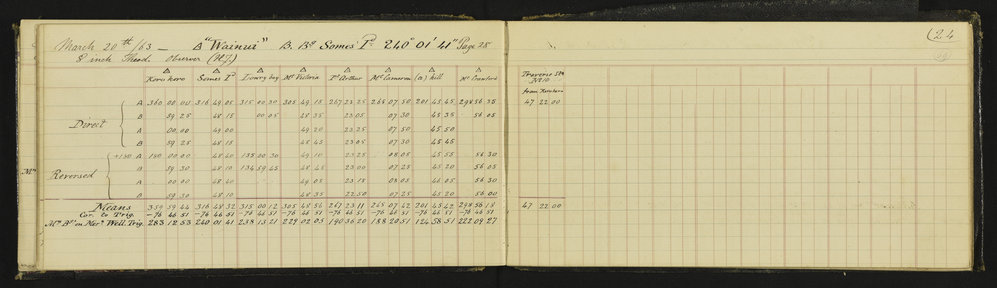 March 20th/63 — △ "Wainui" B. Bg Somes Id. 240° 01' 41" Page 28
(24
8 inch Theod. Observer (H.J.)
△ △ △ △ △ △ △ △
Korokoro Somes Id Lowry bay Mt Victoria Pt Arthur Mt Cameron (a) hill Mt Crawford
Traverse Stn
No 10
from
Direct
A 360 00 00 316 49 05 315 00 30 305 49 15 267 23 25 265 07 50 201 45 45 298 56 35 47 22 00
B 59 25 48 15 00 05 48 35 23 05 07 30 45 35 56 05
A 00 00 49 00 49 20 23 25 07 50 45 50
B 59 25 48 15 48 45 23 05 07 30 45 45
Reversed
+180 A 180 00 00 48 40 135 00 30 49 10 23 25 08 05 45 55 56 30
B 59 30 48 10 134 59 45 48 45 23 00 07 25 45 20 56 05
A 00 00 48 40 49 05 23 15 08 05 46 05 56 30
B 59 30 48 10 48 35 22 50 07 25 45 20 56 00
Means 359 59 44 316 48 32 315 00 12 305 48 56 267 23 11 265 07 42 201 45 42 298 56 18 47 22 00
Cor. to Trig. -76 46 51 -76 46 51 -76 46 51 -76 46 51 -76 46 51 -76 46 51 -76 46 51 -76 46 51
Mn Bg on Mern Well. Trig. 283 12 53 240 01 41 238 13 21 229 02 05 190 36 20 188 20 51 124 58 51 222 09 27